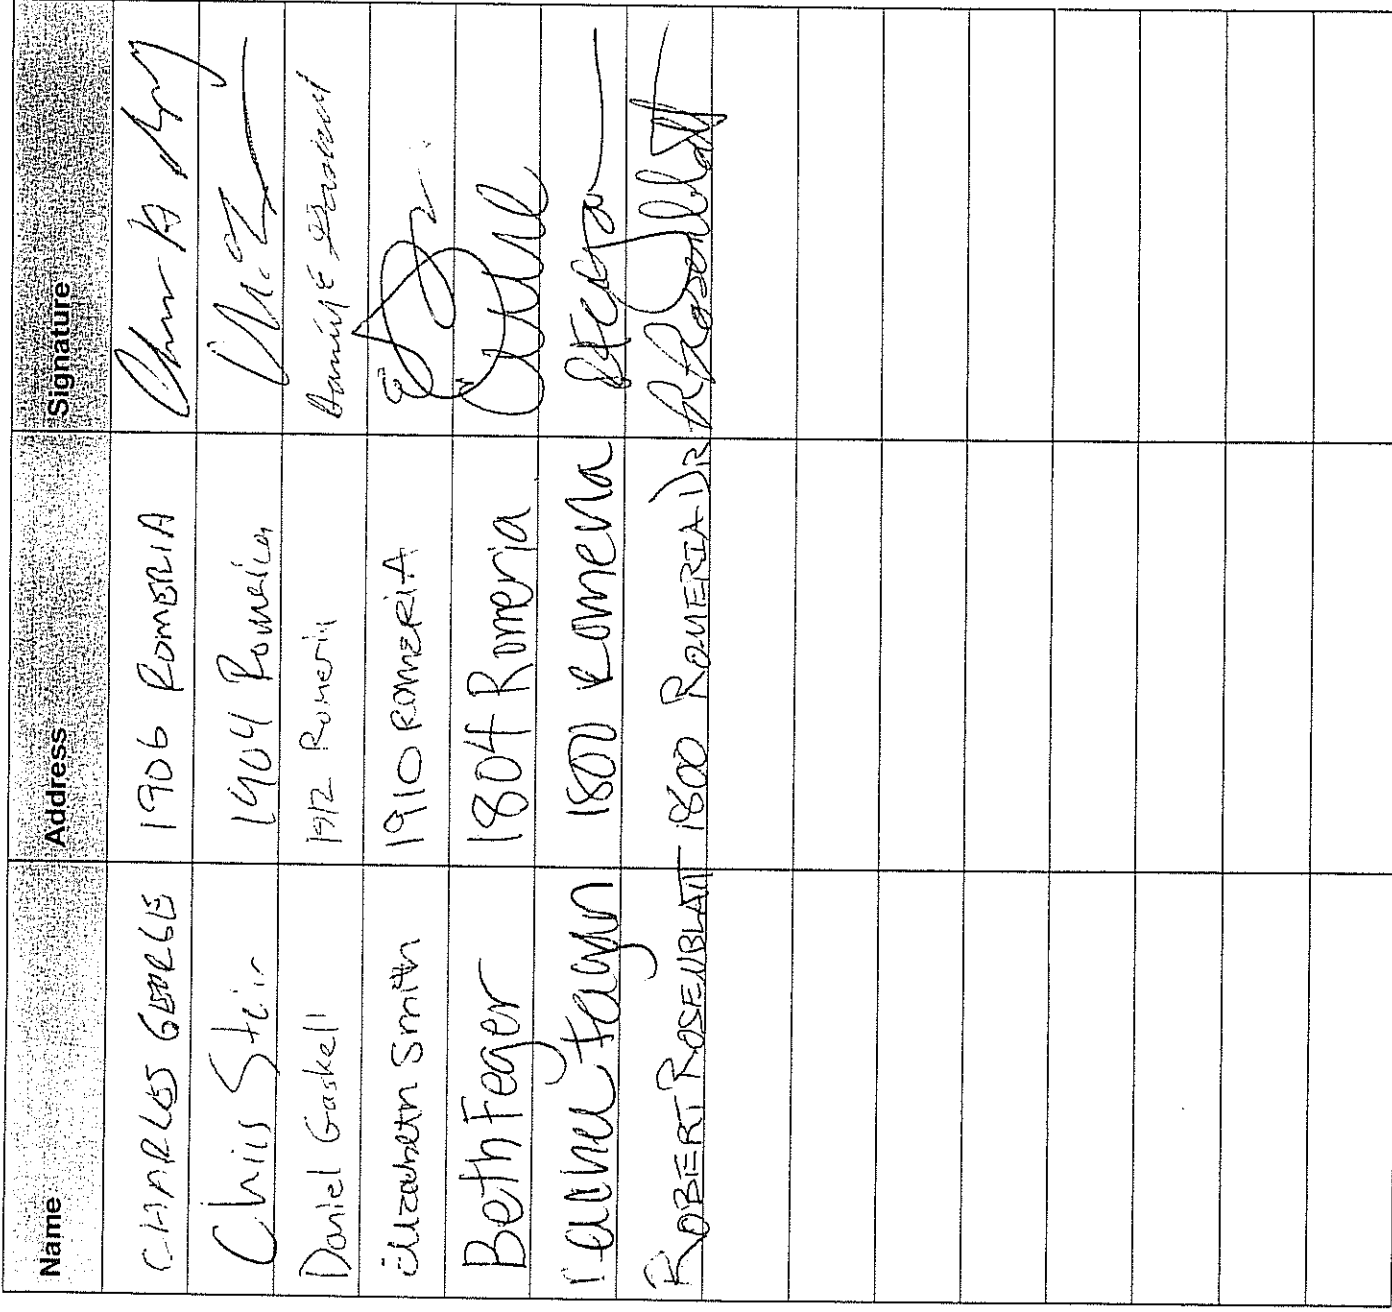 Name Address Signature
CHARLES GEORGE 1906 ROMERIA
Chris Stein 1904 Romeria
Daniel Gaskell 1912 Romeria
Elizabeth Smith 1910 ROMERIA
Beth Feger 1804 Romeria
Fagan 1800 Romeria
ROBERT ROSENBLATT 1800 ROMERIA DR